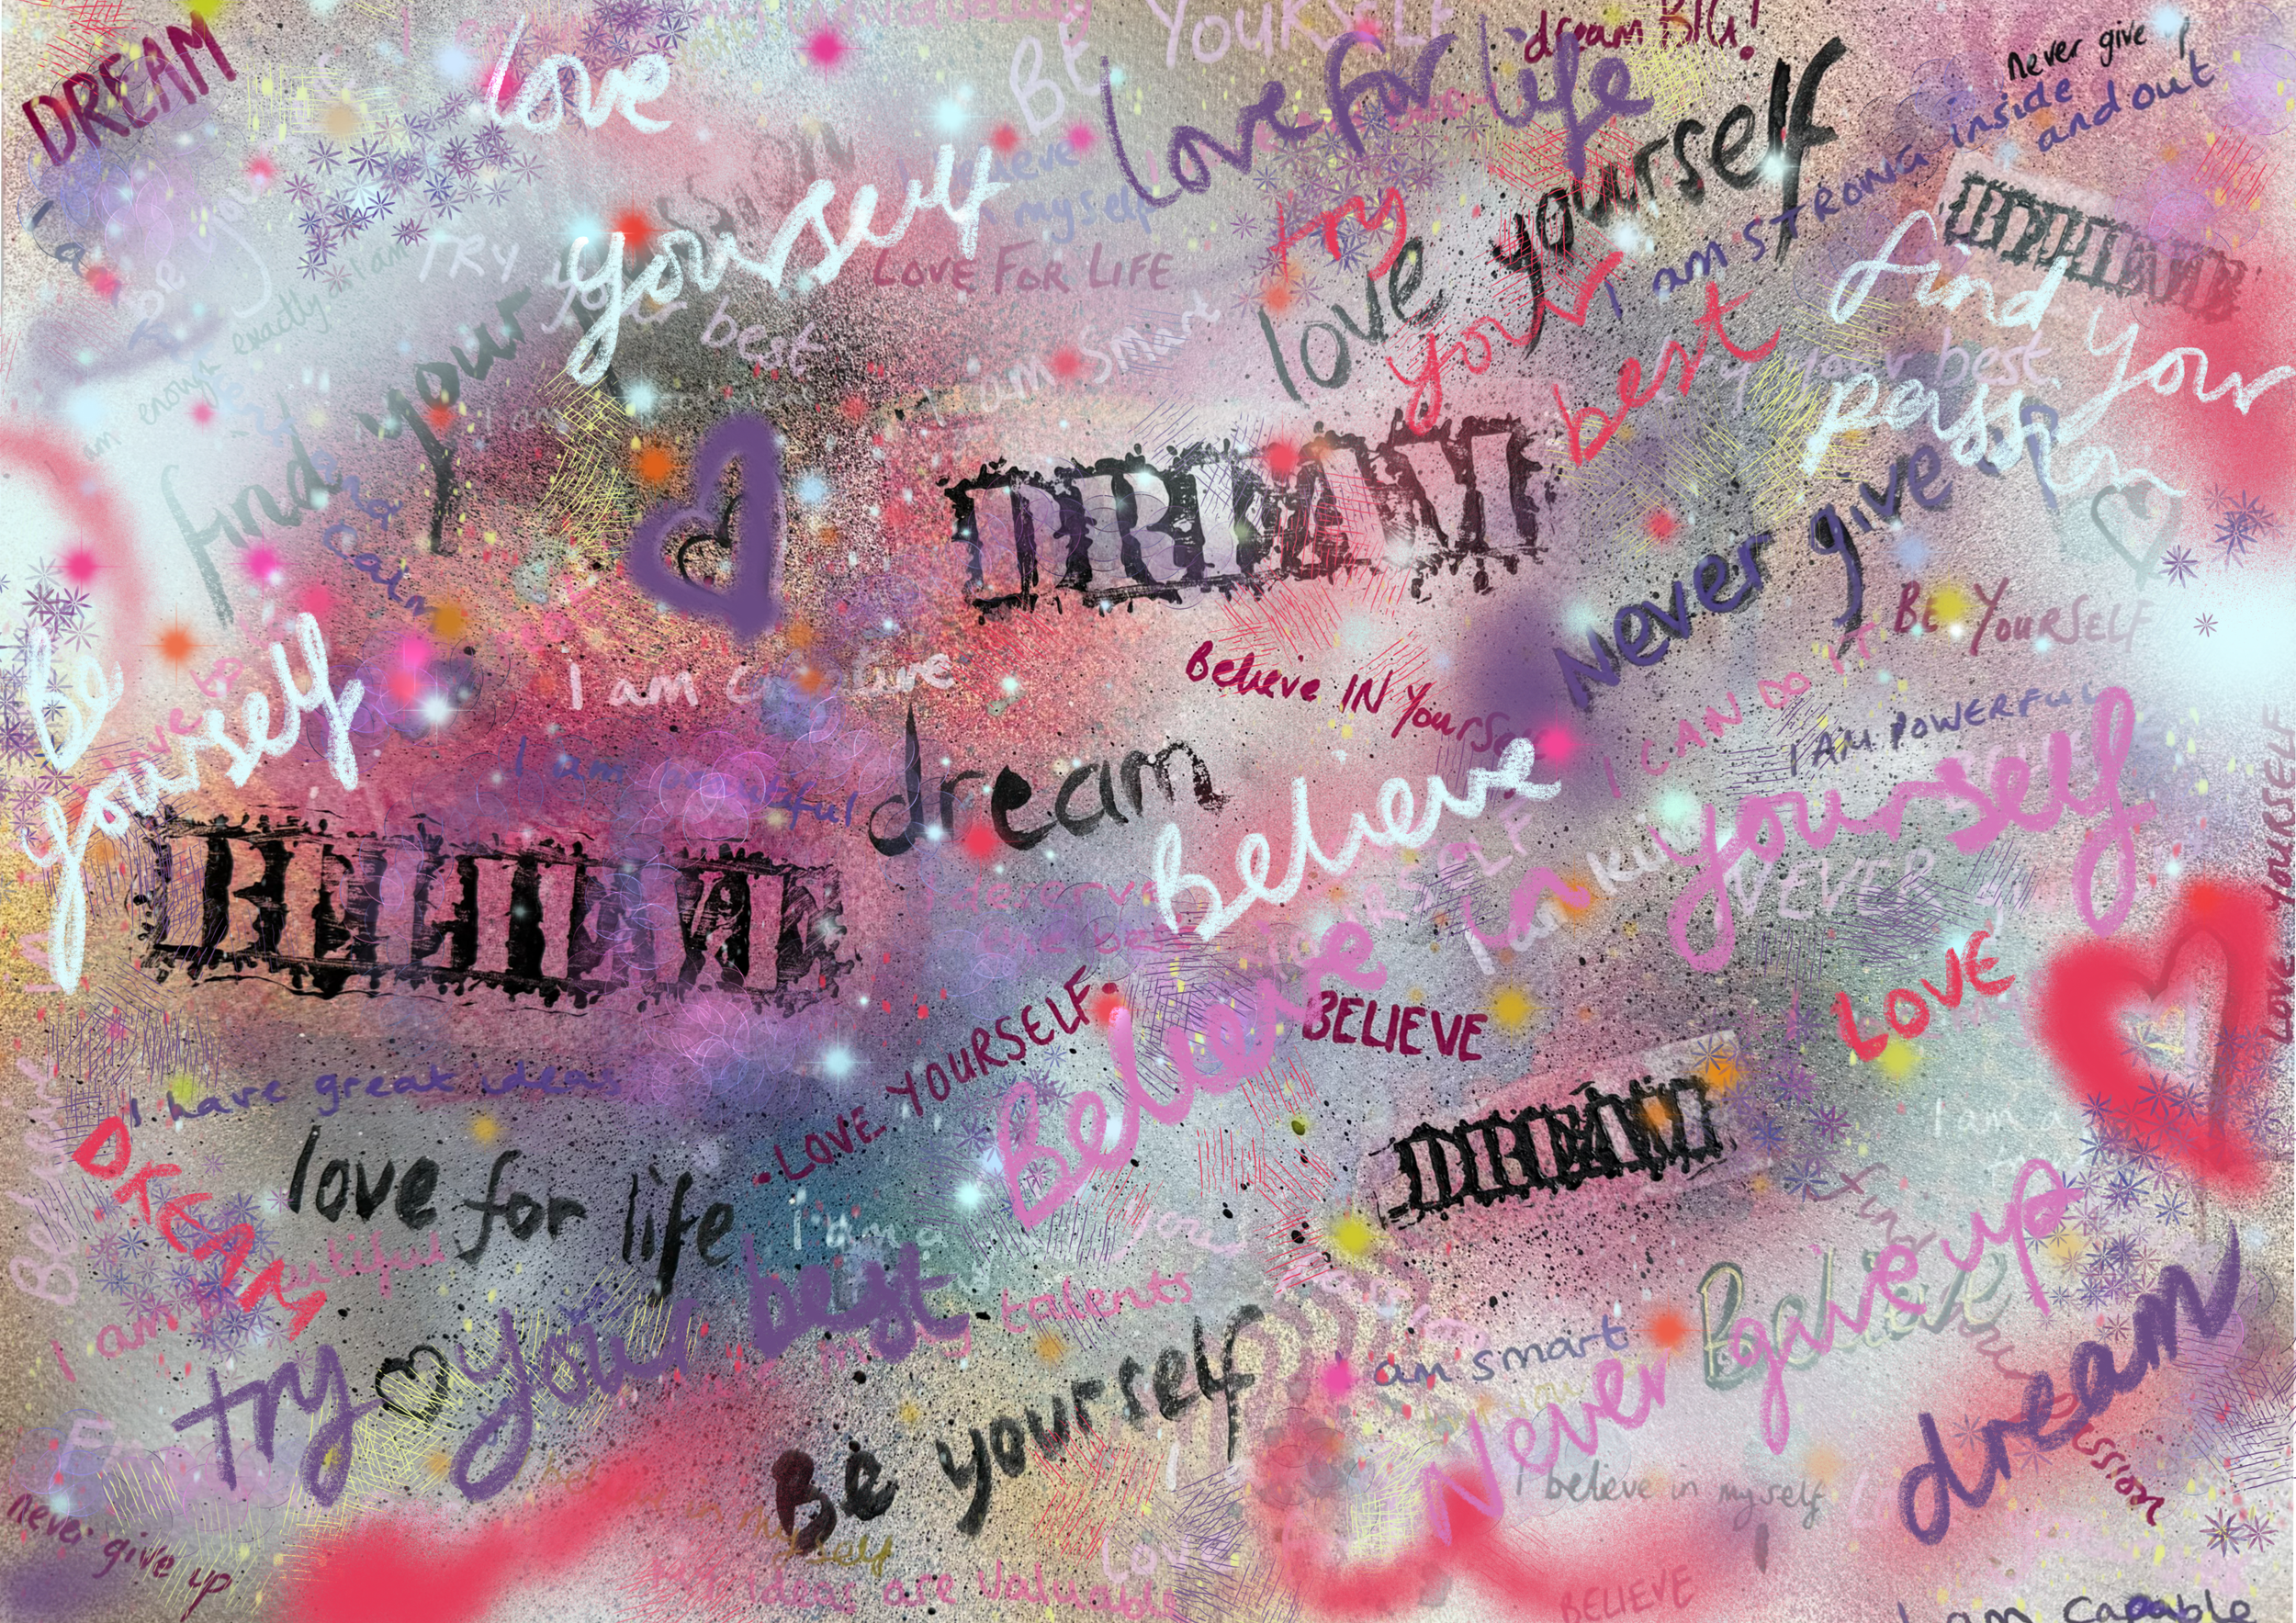 DREAM
love
my individuality
BE YOURSELF
dream BIG!
love for life
never give
I am STRONG inside
and out
yourself
TRY
your best
LOVE FOR LIFE
myself
try
your
best
love yourself
DREAM
find your
passion
I am smart
am enough exactly
I am
find your
and
calm
DREAM
Never give up
BE YOURSELF
be
yourself
I am creative
Believe IN Yourself
I CAN DO IT
I AM POWERFUL
I am beautiful
dream
Believe
in yourself
NEVER
BELIEVE
I deserve
the best
Believe
BELIEVE
LOVE
LOVE YOURSELF
LOVE YOURSELF
I have great ideas
DREAM
love for life
DREAM
I am a
I am
try your best
my talents
Be yourself
I am smart
Never give up
Believe
dream
I believe in myself
never give up
in myself
my ideas are valuable
Love
BELIEVE
I am capable